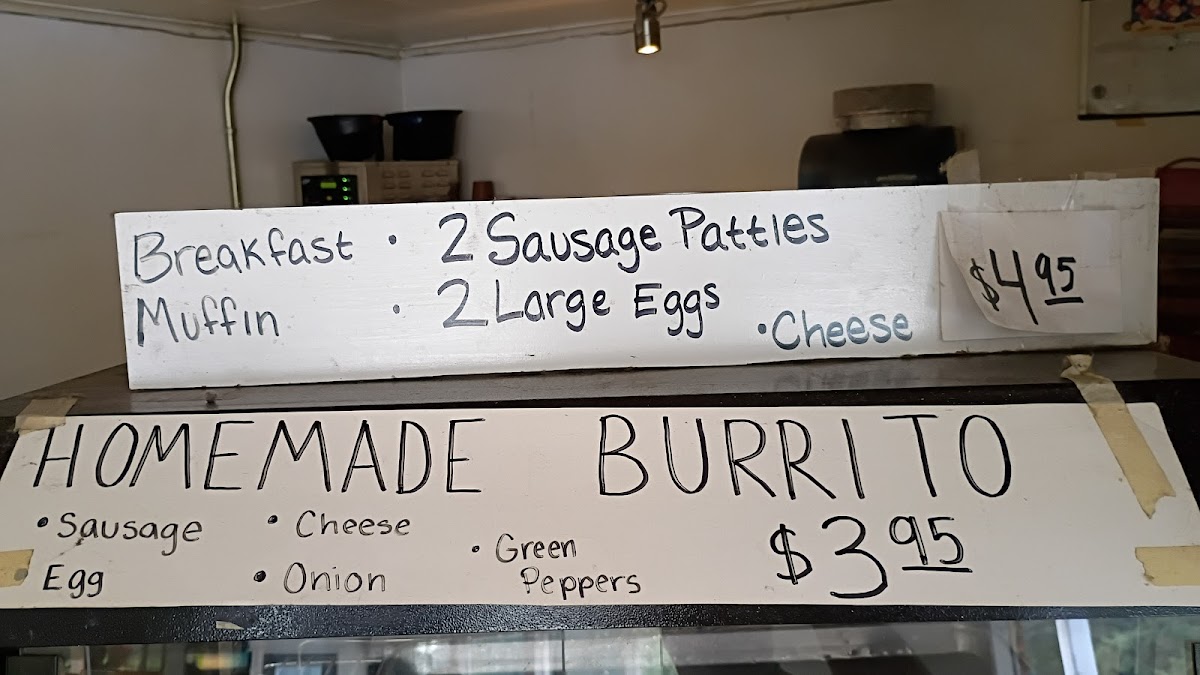 Breakfast · 2 Sausage Patties
Muffin · 2 Large Eggs
·Cheese
$4 95
HOMEMADE BURRITO
• Sausage • Cheese
• Green
Egg • Onion
Peppers
$3 95